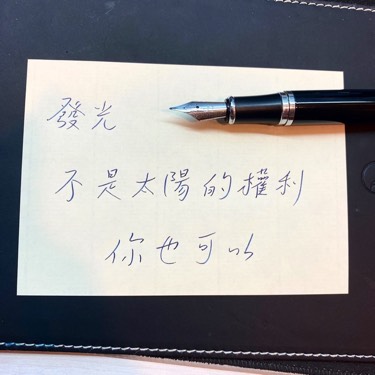 發光
不是太陽的權利
你也可以